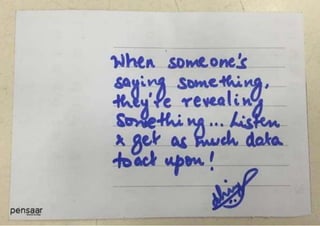 When someone's
saying something,
they're revealing
Something... Listen
& get as much data
to act upon!
pensaar